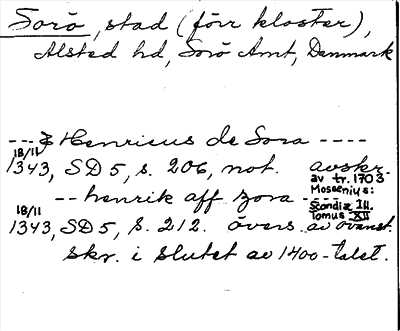 Sorö, stad (förr kloster),
Alsted hd, Sorö Amt, Danmark
--- & Henricus de Sora ----
18/11
1343, SD 5, s. 206, not. avskr.
av tr. 1703
Mossenius:
-- henrik aff zora ---
Scondia Ill.
Tomus XII
18/11
1343, SD 5, s. 212. övers. av ovanst.
skr. i slutet av 1400-talet.